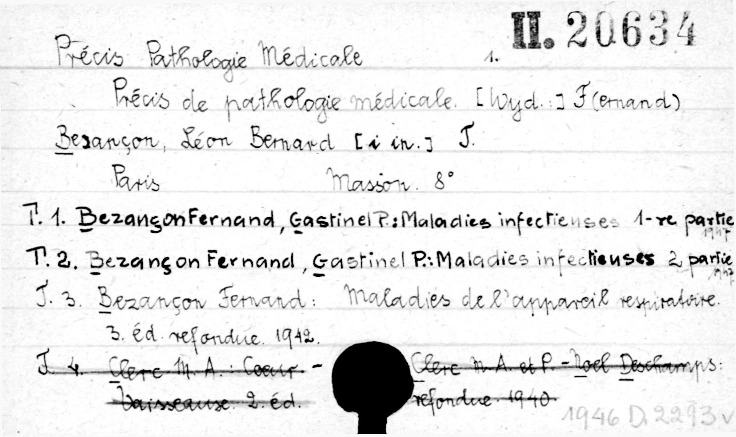 II. 20634
Précis Pathologie Médicale 1.
Précis de pathologie médicale. [Wyd.:] F(ernand)
Bezançon, Léon Bernard [i in.] T.
Paris Masson. 8°
T. 1. Bezançon Fernand, Gastinel P.: Maladies infectieuses 1-re partie
1947
T. 2. Bezançon Fernand, Gastinel P.: Maladies infectieuses 2 partie
1947
T. 3. Bezançon Fernand: Maladies de l'appareil respiratoire.
3. éd. refondue. 1942.
T. 4. Clerc M. A.: Coeur - Clerc M. A. et P. - Noel Deschamps:
Vaisseause. 2. éd. refondue 1940
1946 D. 2293 v